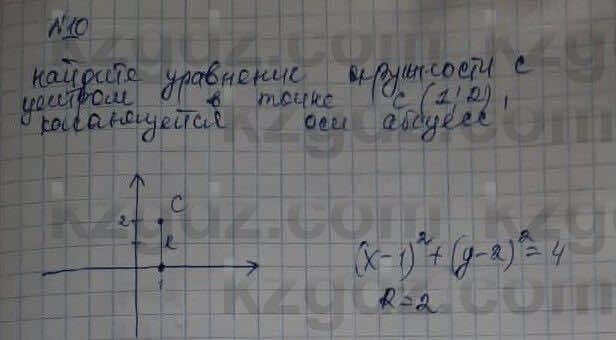 №10
найдите уравнение окружности с
центром в точке C (1;2),
касающейся оси абсцисс
2
C
R
1
(x-1)²+(y-2)²=4
R=2